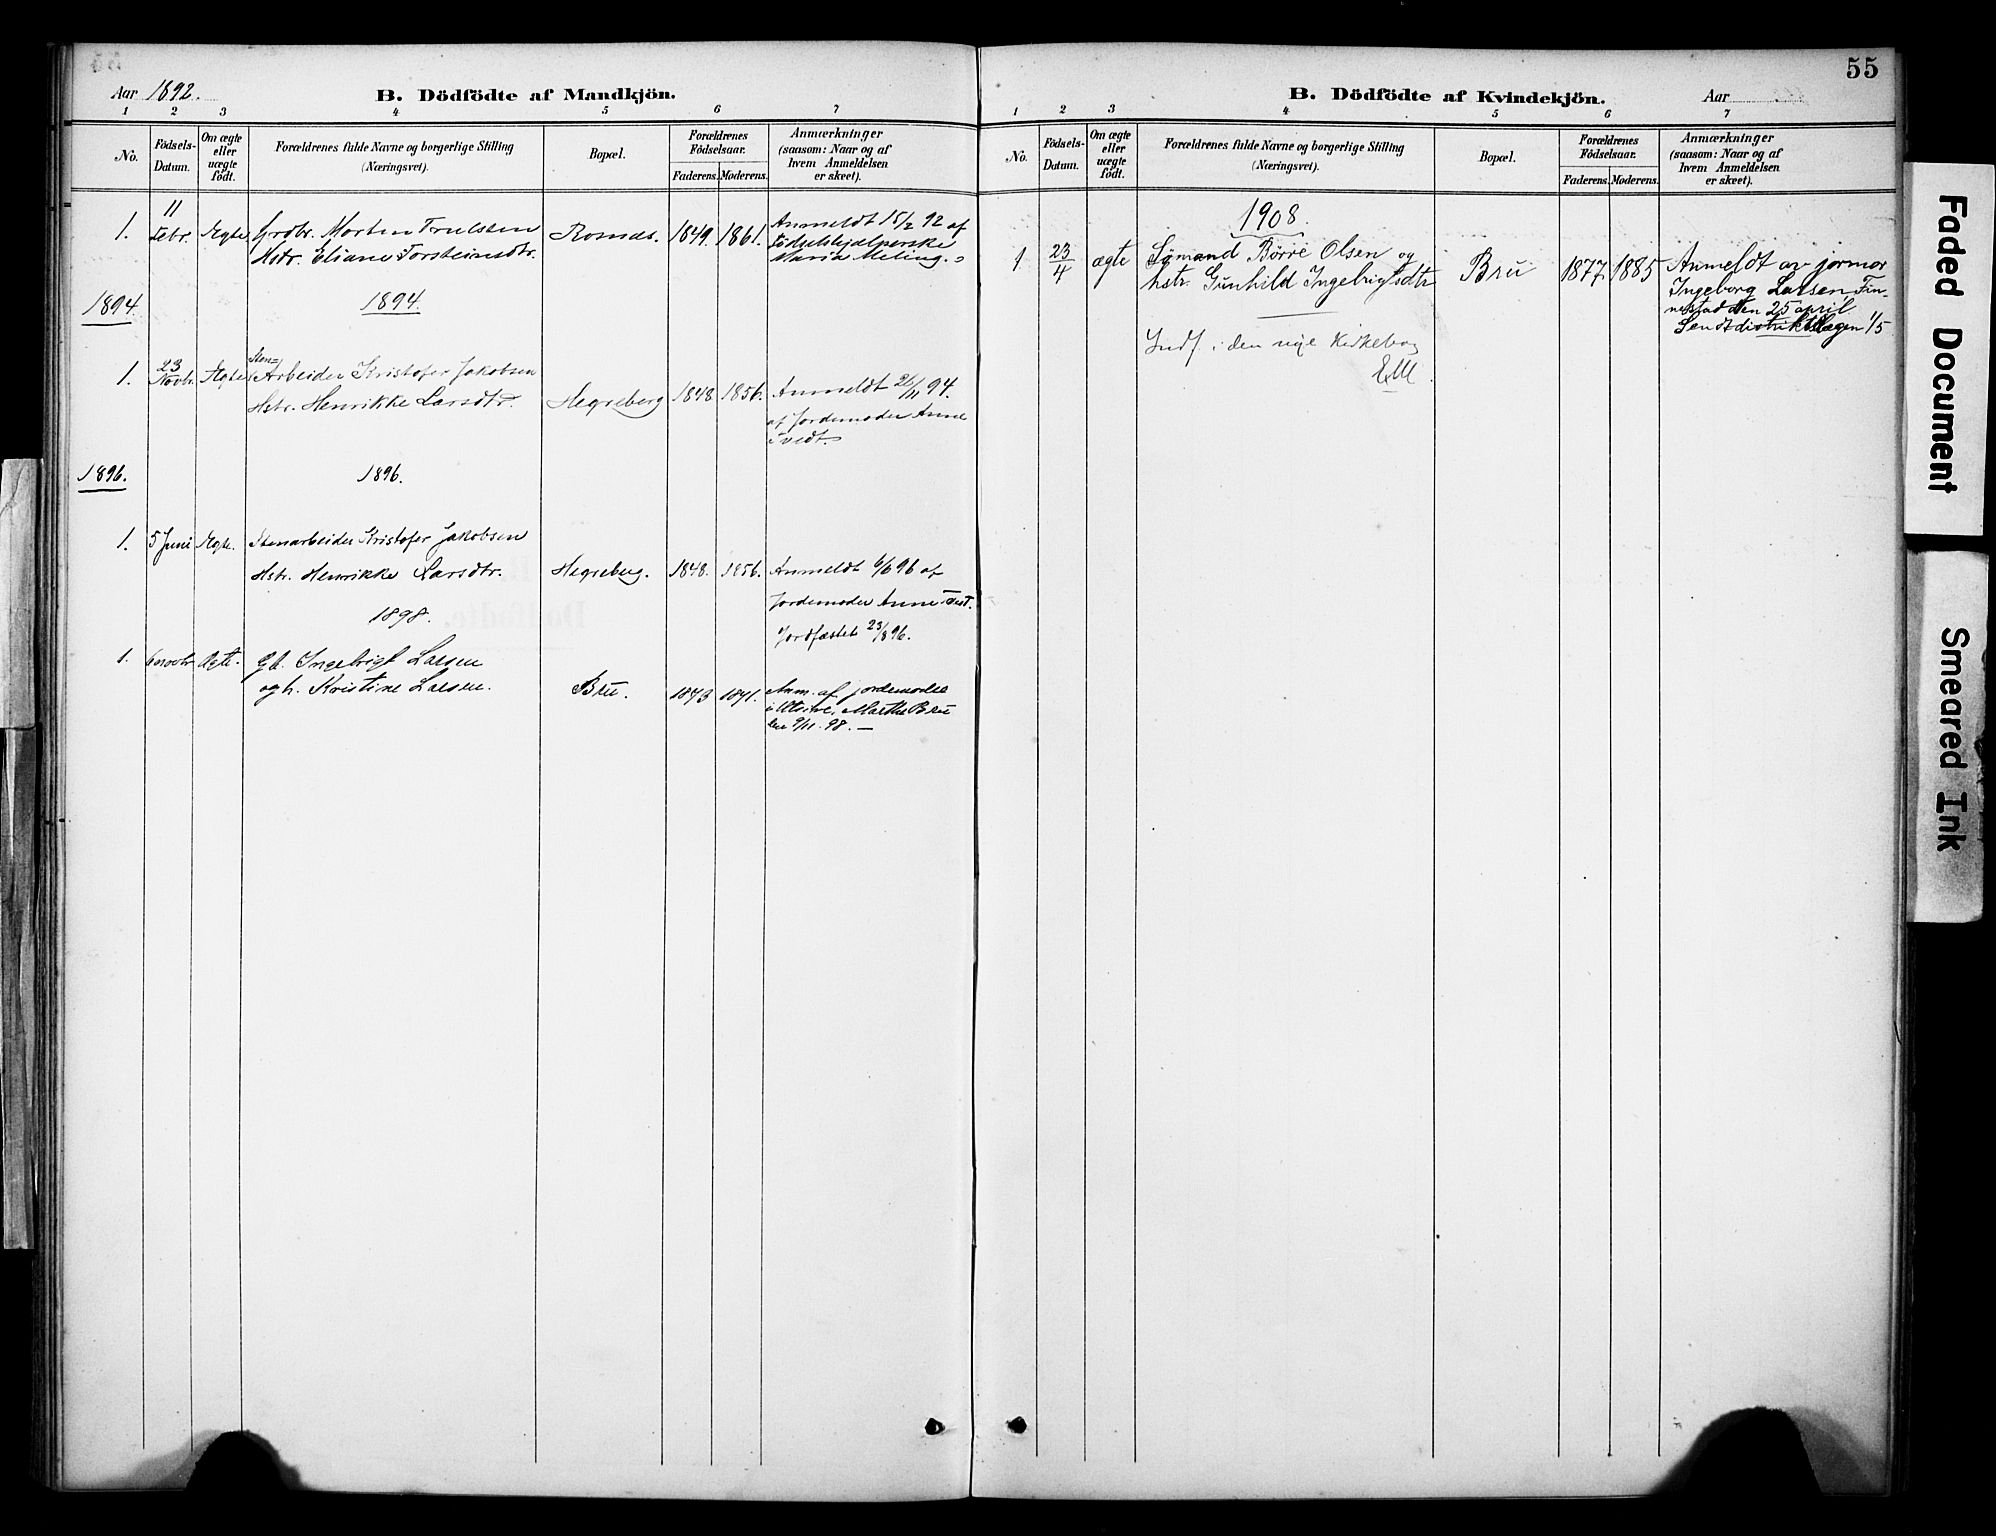 Aar 1892.
B. Dödfödte af Mandkjön.
1 2 3 4 5 6 7
No.
Födsels-
Datum.
Om ægte
eller
uægte
födt.
Forældrenes fulde Navne og borgerlige Stilling
(Næringsvei).
Bopæl.
Forældrenes
Födselsaar.
Faderens. Moderens.
Anmærkninger
(saasom: Naar og af
hvem Anmeldelsen
er skeet).
1. 11 Febr. Ægte Grdbr. Morten Trulssen
Hstr. Eliane Torsteinsdtr.
1849. 1861.
Anmeldt 15/2 92 af
Födselshjælperske
Maria Meling.
1894. 1894.
1. 23 Novbr. Ægte Sten=
Arbeider Kristofer Jakobsen
Hstr. Henrikke Larsdtr. Hegreberg 1848 1856.
Anmeldt 26/11 94.
af Jordemoder Anne
Tvedt.
1896. 1896.
1. 5 Juni Ægte. Stenarbeider Kristofer Jakobsen
Hstr. Henrikke Larsdtr. Hegreberg. 1848. 1856.
Anmeldt 6/6 96 af
Jordemoder Anne Tvedt.
Jordfæstet 23/8 96.
1898.
1. 6 novbr Ægte. Gb. Ingebrigt Larsen
og h. Kristine Larsen. Bru. 1843 1871.
Anm. af jordemoder
i Utstre, Marthe Bru
den 9/11 98. —
55
B. Dödfödte af Kvindekjön.
Aar
1 2 3 4 5 6 7
No.
Födsels-
Datum.
Om ægte
eller
uægte
födt.
Forældrenes fulde Navne og borgerlige Stilling
(Næringsvei).
Bopæl.
Forældrenes
Födselsaar.
Faderens. Moderens.
Anmærkninger
(saasom: Naar og af
hvem Anmeldelsen
er skeet).
1908.
1 23/4 ægte Sømand Børre Olsen og
hstr. Gunhild Ingebrigtsdtr Bru 1877 1885
Anmeldt av jormor
Ingeborg Larsen, Fin-
nestad den 25 april
Sendt distriktslægen 1/5
Indf. i den nye Kirkebog
EM.
Faded Document
Smeared Ink